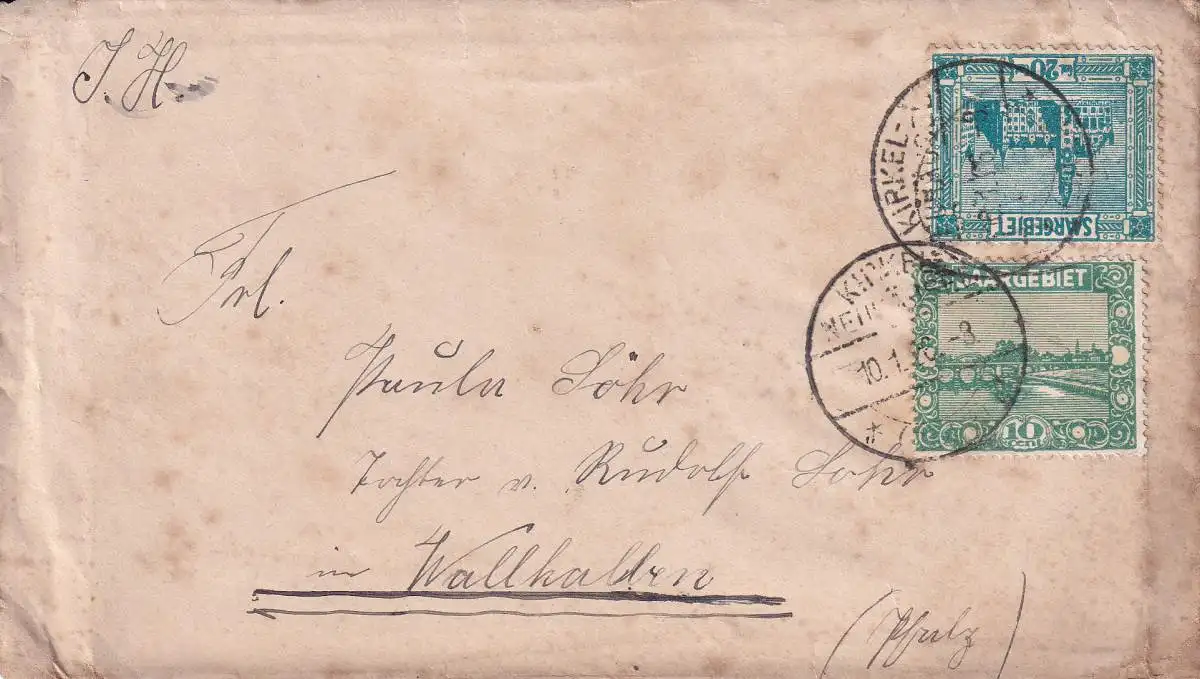 J. H.
20
SAARGEBIET
KIRKEL-
SAARGEBIET
10
CENT
KIRKEL-
10.1. -8.
Frl.
Paula Löhr
Tochter v. Rudolf Löhr
in Wallhalben
(Pfalz)